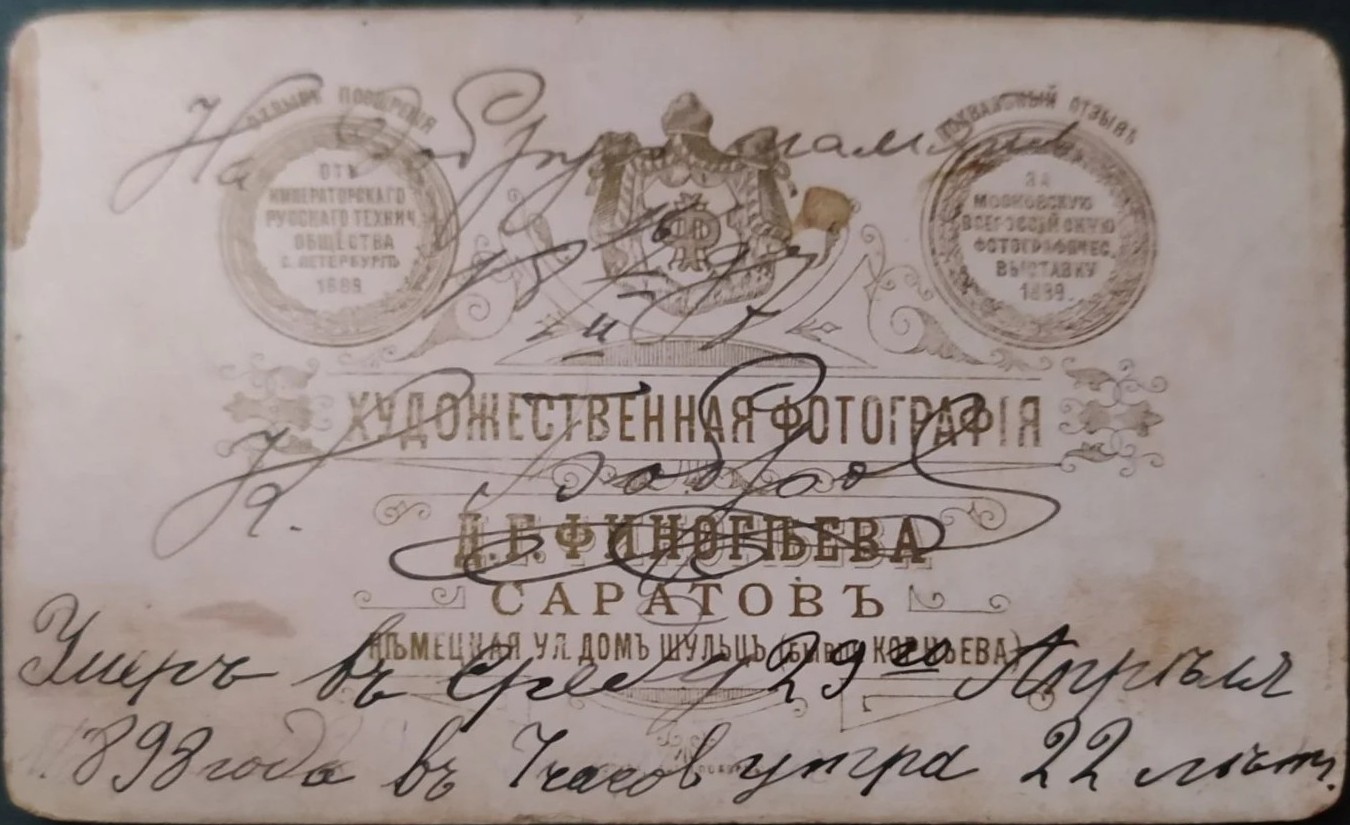 На добрую память
ОТЗЫВЪ ПООЩРЕНІЯ
ОТЪ
ИМПЕРАТОРСКАГО
РУССКАГО ТЕХНИЧ.
ОБЩЕСТВА
С. ПЕТЕРБУРГЪ
1889.
ПОХВАЛЬНЫЙ ОТЗЫВЪ
ЗА
МОСКОВСКУЮ
ВСЕРОССІЙСКУЮ
ФОТОГРАФИЧЕС.
ВЫСТАВКУ
1889.
ХУДОЖЕСТВЕННАЯ ФОТОГРАФІЯ
Д. Г. ФИНОГѢЕВА
САРАТОВЪ
НѢМЕЦКАЯ УЛ. ДОМЪ ШУЛЬЦЪ (БЫВШ. КОРНѢЕВА)
Умеръ въ среду 29го Апрѣля
1898 года въ 7 часов утра 22 лѣтъ.